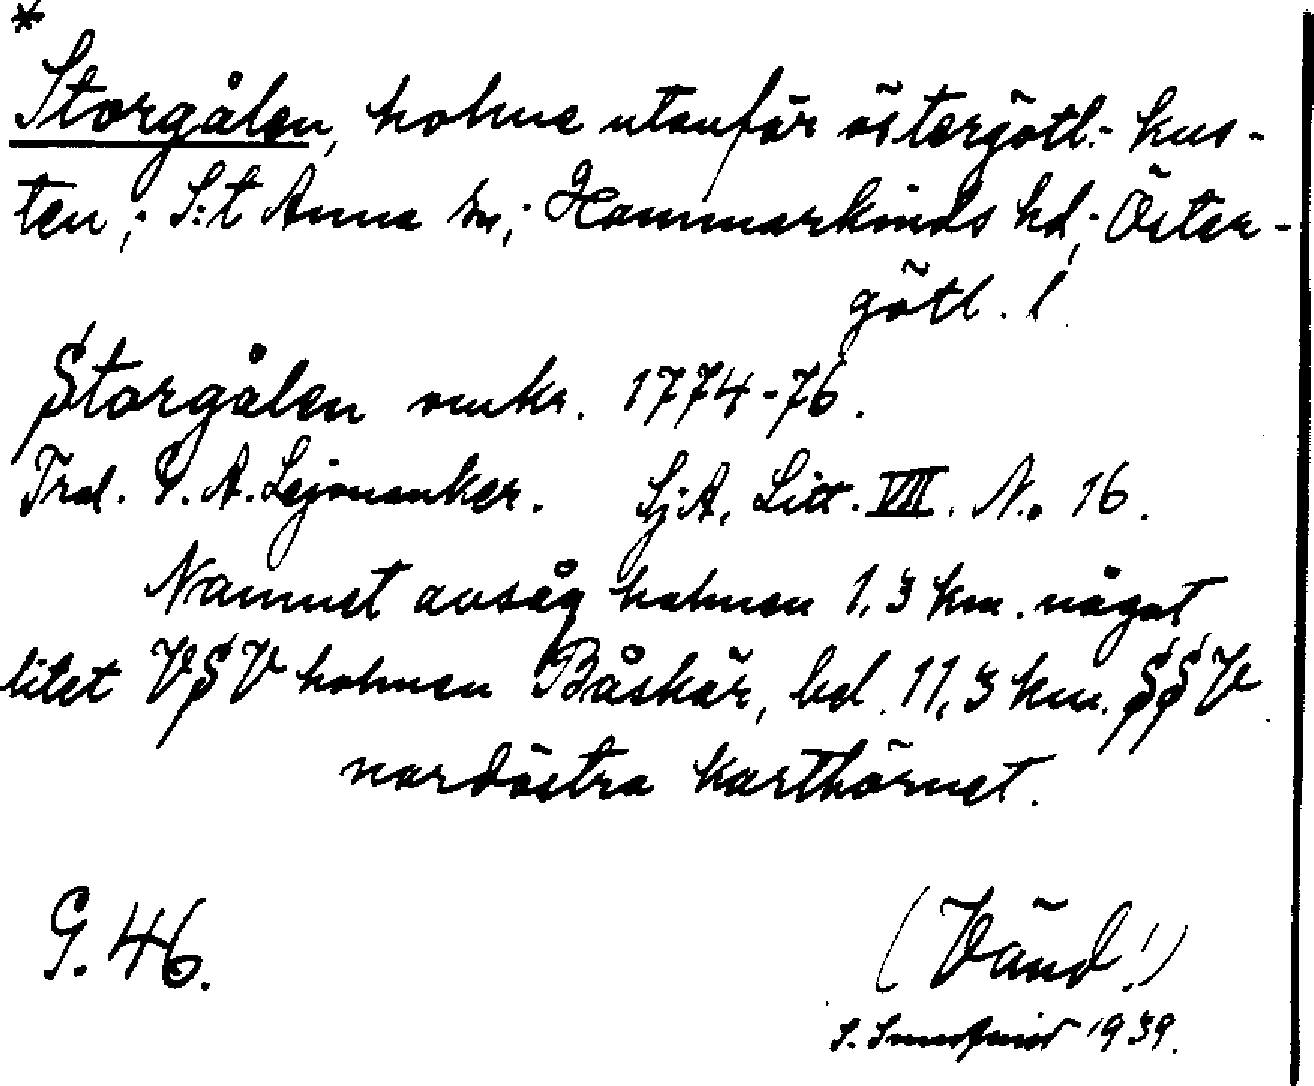 *
Storgålen, holme utanför östergötl. kus-
ten; S:t Anna sn; Hammarkinds hd; Öster-
götl. l.
Storgålen omkr. 1774-76.
Trol. P. A. Lejonanker. Sj.A. Litt. VII. No 16.
Namnet avsåg holmen 1,3 km. något
litet VSV holmen Båskär, bel. 11,3 km. SSV
nordöstra karthörnet.
G. 46.
(Vänd!)
S. 1939.